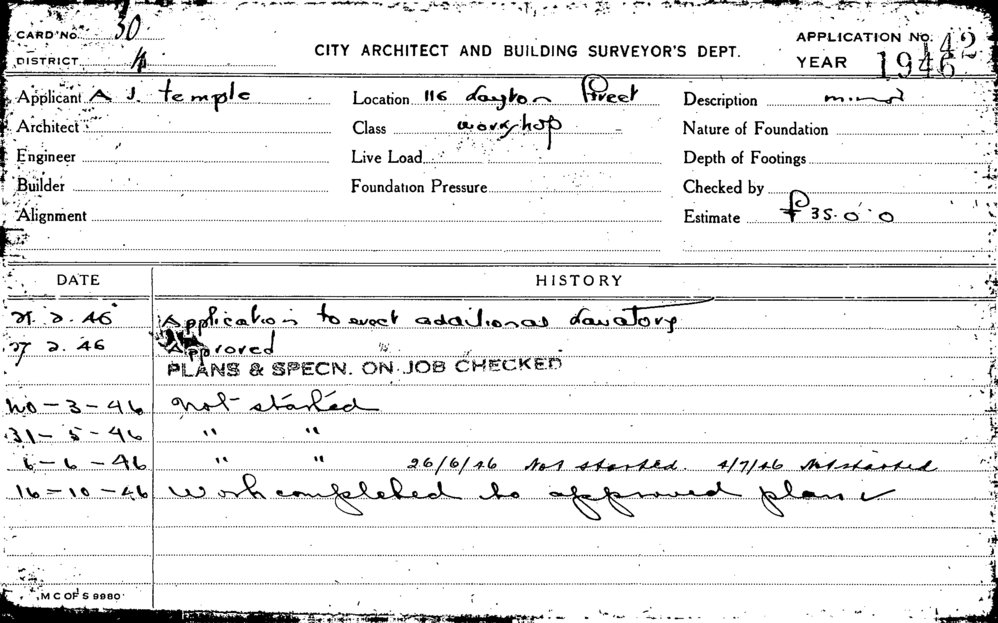 CARD No. 30.
DISTRICT 4
CITY ARCHITECT AND BUILDING SURVEYOR'S DEPT.
APPLICATION No. 142
YEAR 1946
Applicant A J. Temple
Location 116 Layton Street
Description minor
Architect
Class workshop
Nature of Foundation
Engineer
Live Load
Depth of Footings
Builder
Foundation Pressure
Checked by
Alignment
Estimate £35.0.0
DATE HISTORY
21. 2. 46 Application to erect additional Lavatory
27 2. 46 Approved
PLANS & SPECN. ON JOB CHECKED
-3-46 Not started
31-5-46 " "
6-6-46 " " 26/6/46 Not started. 4/7/46 Not started
16-10-46 Work completed to approved plan
M C OF S 9980